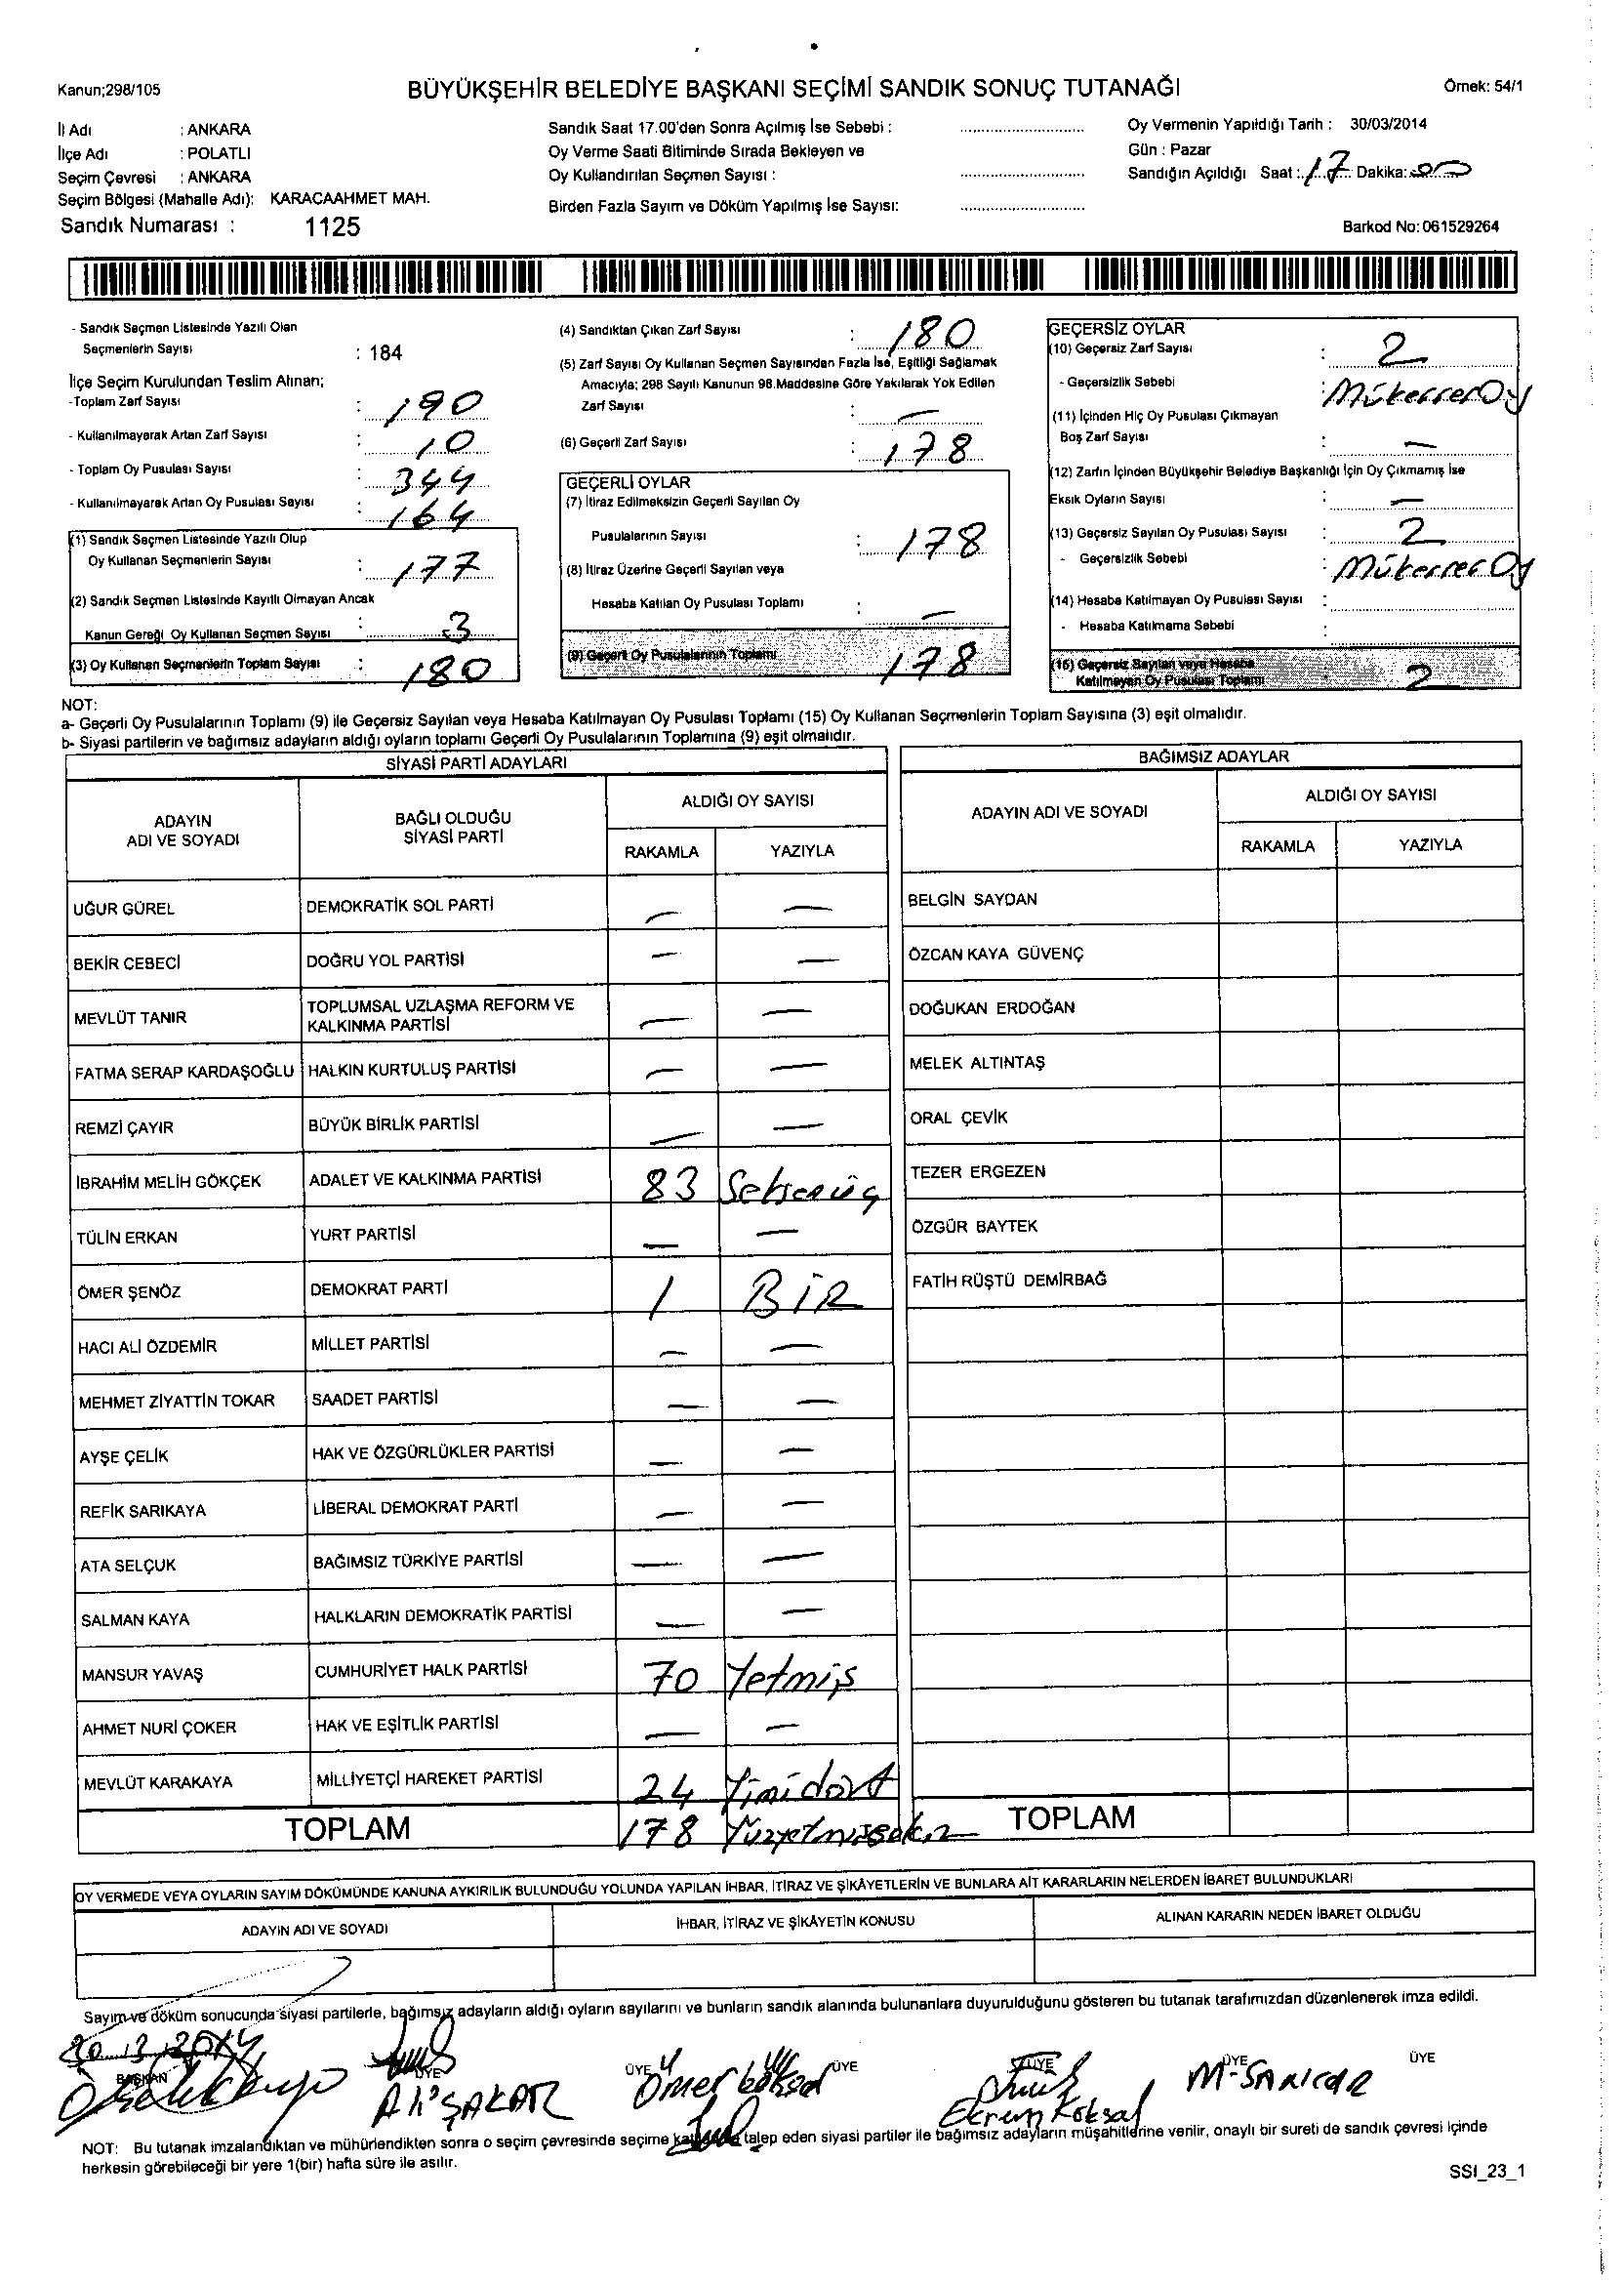 Kanun;298/105
BÜYÜKŞEHİR BELEDİYE BAŞKANI SEÇİMİ SANDIK SONUÇ TUTANAĞI
Örnek: 54/1
İl Adı : ANKARA
İlçe Adı : POLATLI
Seçim Çevresi : ANKARA
Seçim Bölgesi (Mahalle Adı): KARACAAHMET MAH.
Sandık Numarası : 1125
Sandık Saat 17.00'den Sonra Açılmış İse Sebebi :
Oy Verme Saati Bitiminde Sırada Bekleyen ve
Oy Kullandırılan Seçmen Sayısı :
Birden Fazla Sayım ve Döküm Yapılmış İse Sayısı:
Oy Vermenin Yapıldığı Tarih : 30/03/2014
Gün : Pazar
Sandığın Açıldığı Saat : 17 Dakika: 00
Barkod No: 061529264
- Sandık Seçmen Listesinde Yazılı Olan
Seçmenlerin Sayısı : 184
İlçe Seçim Kurulundan Teslim Alınan;
-Toplam Zarf Sayısı : 190
- Kullanılmayarak Artan Zarf Sayısı : 10
- Toplam Oy Pusulası Sayısı : 344
- Kullanılmayarak Artan Oy Pusulası Sayısı : 164
(1) Sandık Seçmen Listesinde Yazılı Olup
Oy Kullanan Seçmenlerin Sayısı : 177
(2) Sandık Seçmen Listesinde Kayıtlı Olmayan Ancak
Kanun Gereği Oy Kullanan Seçmen Sayısı : 3
(3) Oy Kullanan Seçmenlerin Toplam Sayısı : 180
(4) Sandıktan Çıkan Zarf Sayısı : 180
(5) Zarf Sayısı Oy Kullanan Seçmen Sayısından Fazla İse, Eşitliği Sağlamak
Amacıyla; 298 Sayılı Kanunun 98.Maddesine Göre Yakılarak Yok Edilen
Zarf Sayısı : —
(6) Geçerli Zarf Sayısı : 178
GEÇERLİ OYLAR
(7) İtiraz Edilmeksizin Geçerli Sayılan Oy
Pusulalarının Sayısı : 178
(8) İtiraz Üzerine Geçerli Sayılan veya
Hesaba Katılan Oy Pusulası Toplamı : —
(9) Geçerli Oy Pusulalarının Toplamı 178
GEÇERSİZ OYLAR
(10) Geçersiz Zarf Sayısı : 2
- Geçersizlik Sebebi : Mükerrer Oy
(11) İçinden Hiç Oy Pusulası Çıkmayan
Boş Zarf Sayısı : —
(12) Zarfın İçinden Büyükşehir Belediye Başkanlığı İçin Oy Çıkmamış İse
Eksik Oyların Sayısı : —
(13) Geçersiz Sayılan Oy Pusulası Sayısı : 2
- Geçersizlik Sebebi : Mükerrer Oy
(14) Hesaba Katılmayan Oy Pusulası Sayısı :
- Hesaba Katılmama Sebebi :
(15) Geçersiz Sayılan veya Hesaba
Katılmayan Oy Pusulası Toplamı 2
NOT:
a- Geçerli Oy Pusulalarının Toplamı (9) ile Geçersiz Sayılan veya Hesaba Katılmayan Oy Pusulası Toplamı (15) Oy Kullanan Seçmenlerin Toplam Sayısına (3) eşit olmalıdır.
b- Siyasi partilerin ve bağımsız adayların aldığı oyların toplamı Geçerli Oy Pusulalarının Toplamına (9) eşit olmalıdır.
SİYASİ PARTİ ADAYLARI
ADAYIN
ADI VE SOYADI
BAĞLI OLDUĞU
SİYASİ PARTİ
ALDIĞI OY SAYISI
RAKAMLA YAZIYLA
UĞUR GÜREL DEMOKRATİK SOL PARTİ — —
BEKİR CEBECİ DOĞRU YOL PARTİSİ — —
MEVLÜT TANIR TOPLUMSAL UZLAŞMA REFORM VE
KALKINMA PARTİSİ — —
FATMA SERAP KARDAŞOĞLU HALKIN KURTULUŞ PARTİSİ — —
REMZİ ÇAYIR BÜYÜK BİRLİK PARTİSİ — —
İBRAHİM MELİH GÖKÇEK ADALET VE KALKINMA PARTİSİ 83 Seksenüç
TÜLİN ERKAN YURT PARTİSİ — —
ÖMER ŞENÖZ DEMOKRAT PARTİ 1 BİR
HACI ALİ ÖZDEMİR MİLLET PARTİSİ — —
MEHMET ZİYATTİN TOKAR SAADET PARTİSİ — —
AYŞE ÇELİK HAK VE ÖZGÜRLÜKLER PARTİSİ — —
REFİK SARIKAYA LİBERAL DEMOKRAT PARTİ — —
ATA SELÇUK BAĞIMSIZ TÜRKİYE PARTİSİ — —
SALMAN KAYA HALKLARIN DEMOKRATİK PARTİSİ — —
MANSUR YAVAŞ CUMHURİYET HALK PARTİSİ 70 Yetmiş
AHMET NURİ ÇOKER HAK VE EŞİTLİK PARTİSİ — —
MEVLÜT KARAKAYA MİLLİYETÇİ HAREKET PARTİSİ 24 Yimidört
TOPLAM 178 Yüzyetmişsekiz
BAĞIMSIZ ADAYLAR
ADAYIN ADI VE SOYADI
ALDIĞI OY SAYISI
RAKAMLA YAZIYLA
BELGİN SAYDAN
ÖZCAN KAYA GÜVENÇ
DOĞUKAN ERDOĞAN
MELEK ALTINTAŞ
ORAL ÇEVİK
TEZER ERGEZEN
ÖZGÜR BAYTEK
FATİH RÜŞTÜ DEMİRBAĞ
TOPLAM
OY VERMEDE VEYA OYLARIN SAYIM DÖKÜMÜNDE KANUNA AYKIRILIK BULUNDUĞU YOLUNDA YAPILAN İHBAR, İTİRAZ VE ŞİKÂYETLERİN VE BUNLARA AİT KARARLARIN NELERDEN İBARET BULUNDUKLARI
ADAYIN ADI VE SOYADI İHBAR, İTİRAZ VE ŞİKÂYETİN KONUSU ALINAN KARARIN NEDEN İBARET OLDUĞU
Sayım ve döküm sonucunda siyasi partilerle, bağımsız adayların aldığı oyların sayılarını ve bunların sandık alanında bulunanlara duyurulduğunu gösteren bu tutanak tarafımızdan düzenlenerek imza edildi.
BAŞKAN ÜYE ÜYE ÜYE ÜYE ÜYE ÜYE
Ali ŞAKAR Ömer Köksal Ekrem Köksal M-SARICAR
NOT: Bu tutanak imzalandıktan ve mühürlendikten sonra o seçim çevresinde seçime talep eden siyasi partiler ile bağımsız adayların müşahitlerine verilir, onaylı bir sureti de sandık çevresi içinde
herkesin görebileceği bir yere 1(bir) hafta süre ile asılır.
SSI_23_1